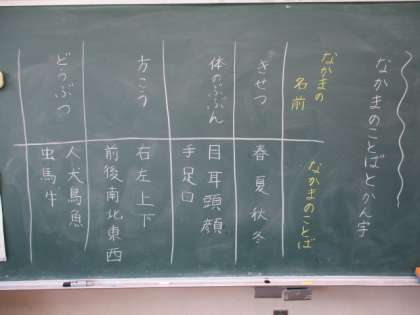 なかまのことばとかん字
なかまの
名前
なかまのことば
きせつ
春夏秋冬
体のぶぶん
目耳頭顔
手足口
方こう
右左上下
前後南北東西
どうぶつ
人犬鳥魚
虫馬牛